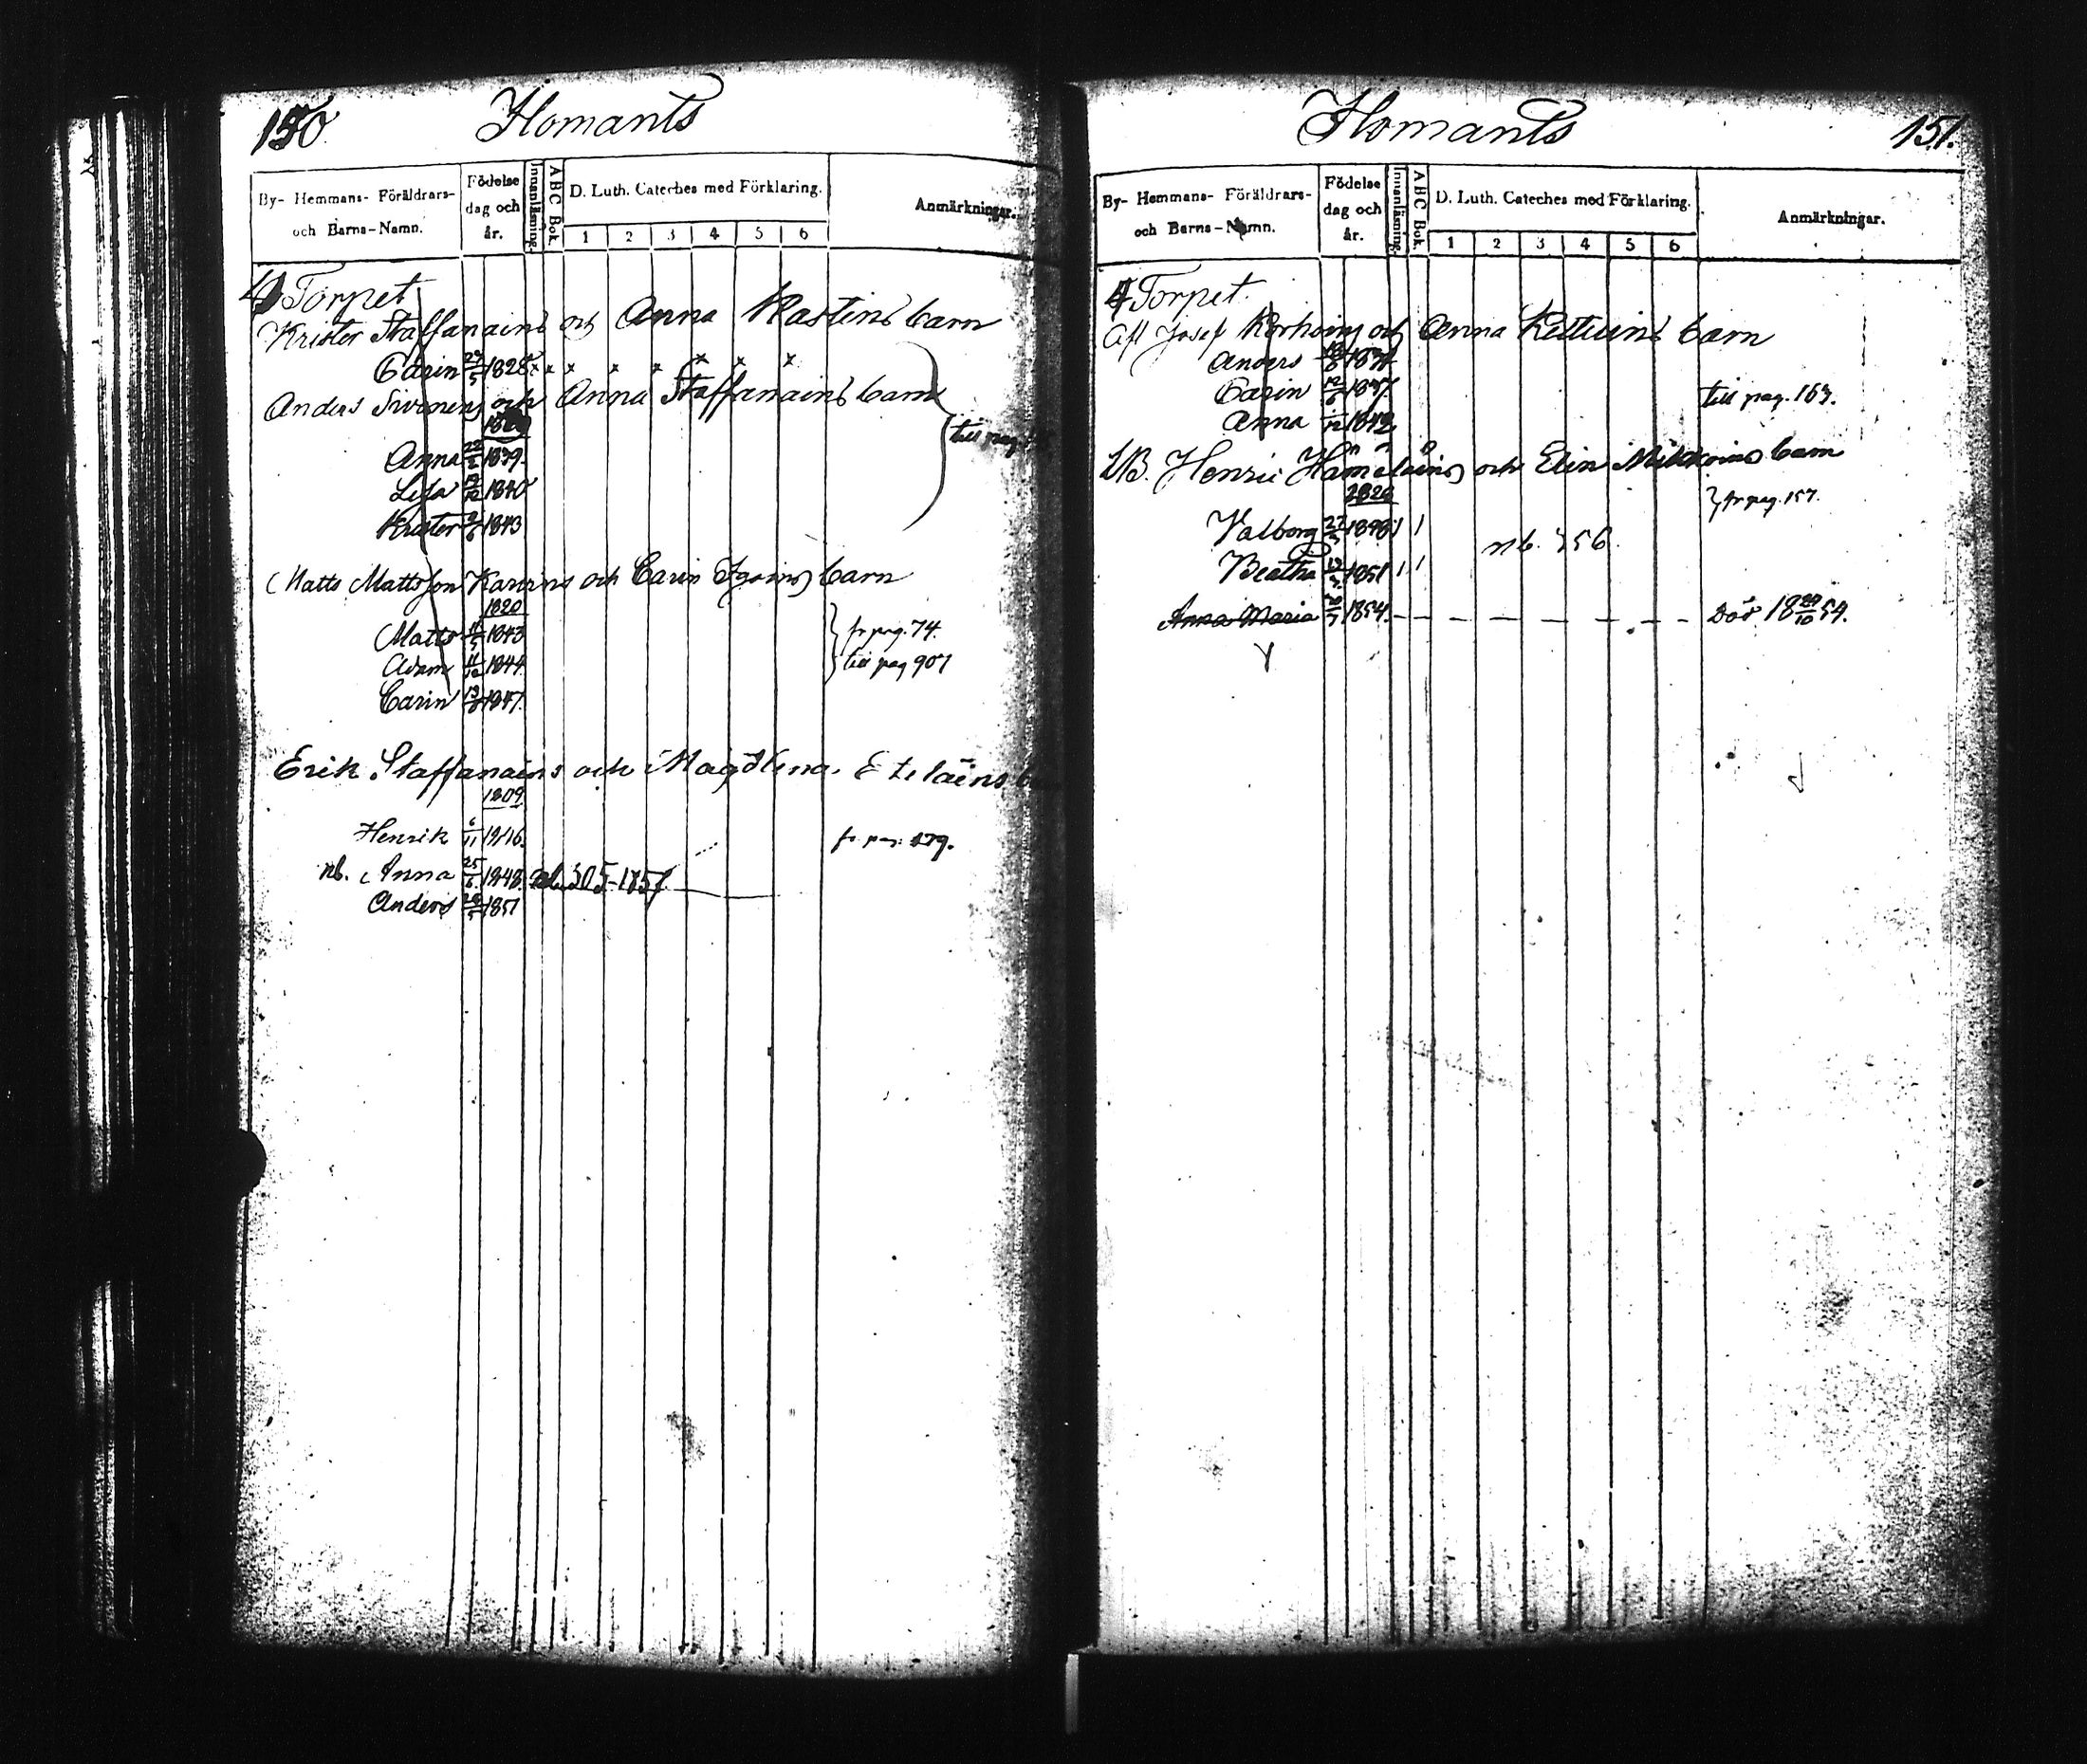 150 Homants
By- Hemmans- Föräldrars- och Barns-Namn. Födelse dag och år. Innanläsning. ABC Bok. D. Luth. Cateches med Förklaring. 1 2 3 4 5 6 Anmärkningar.
4 Torpet
Krister Staffanains och Anna Rastins barn
Carin 1828 x x x x x x x x
Anders och Anna Staffanains barn
till pag.
Anna 22 1839.
Lisa 1840
Krister 1843
Matts Mattsson och Carin barn
1820
Matts 1843 fr pag. 74.
Adam 11/12 1844. till pag 907
Carin 1847.
Erik Staffanains och Magdlena Eteläins
1809
Henrik 6/11 1846. fr. pag. 179.
nb. Anna 25/6 1848. 305-1857
Anders 1851
Homants 151.
By- Hemmans- Föräldrars- och Barns-Namn. Födelse dag och år. Innanläsning. ABC Bok. D. Luth. Cateches med Förklaring. 1 2 3 4 5 6 Anmärkningar.
4 Torpet.
Afl Josef Korhoins och Anna barn
Anders
Carin 12/6 1837. till pag. 163.
Anna 1842.
Henric Hämäläins och Elin barn
1826 fr pag. 157.
Valborg 27 1 1
nb. 756
Beatha 1851 1 1
Anna Maria 1854. Död 18 /10 54.